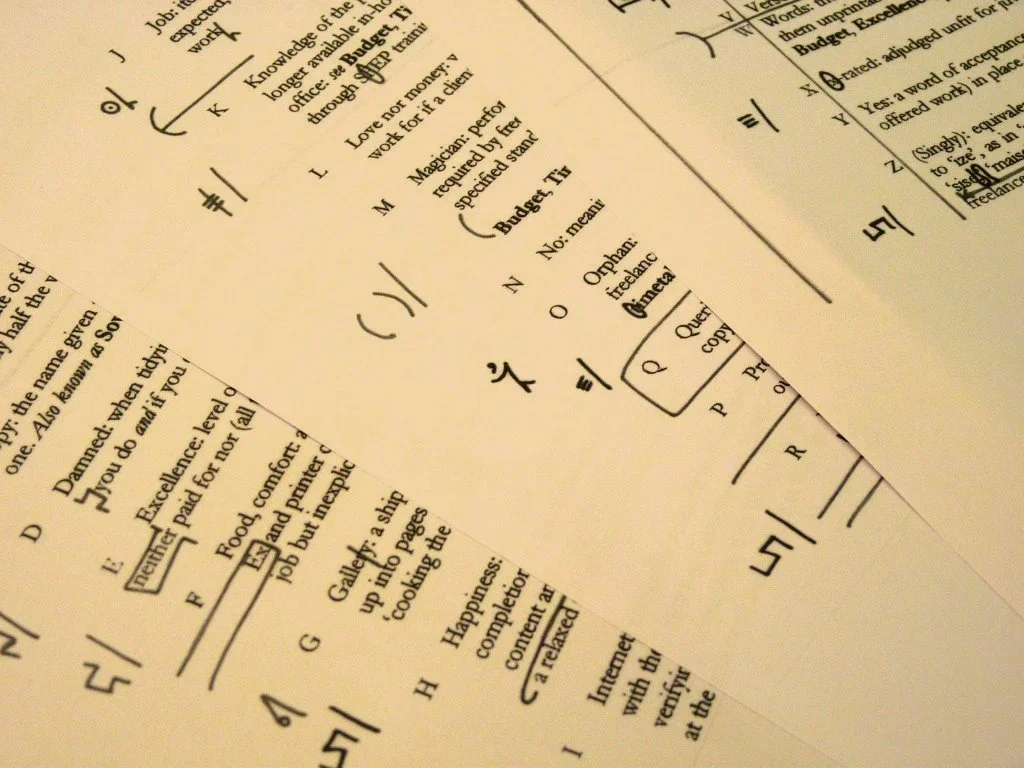 J
Job: it
expected,
work
K
Knowledge of the
longer available in-ho
office: see Budget, Ti
through STEP traini
L
Love nor money: w
work for if a clien
M
Magician: perfo
required by fre
specified stand
Budget, Tim
N
No: meani
O
Orphan:
freelanc
Bimetal
Q
Quer
copy
P
Pr
R
V
W
Words: th
them unprintab
Budget, Excellenc
X
X-rated: adjudged unfit for
Y
Yes: a word of acceptance
offered work) in place
Z
(Singly): equivale
to 'ize', as in '
maiso
freelance
me of th
y half the v
opy: the name given
one. Also known as Sov
D
Damned: when tidyi
you do and if you
E
Excellence: level o
neither paid for nor (all
F
Food, comfort: a
Ex and printer
job but inexplic
G
Gallery: a ship
up into pages
'cooking the
H
Happiness:
completion
content an
a relaxed
I
Internet
with the
verifyin
at the